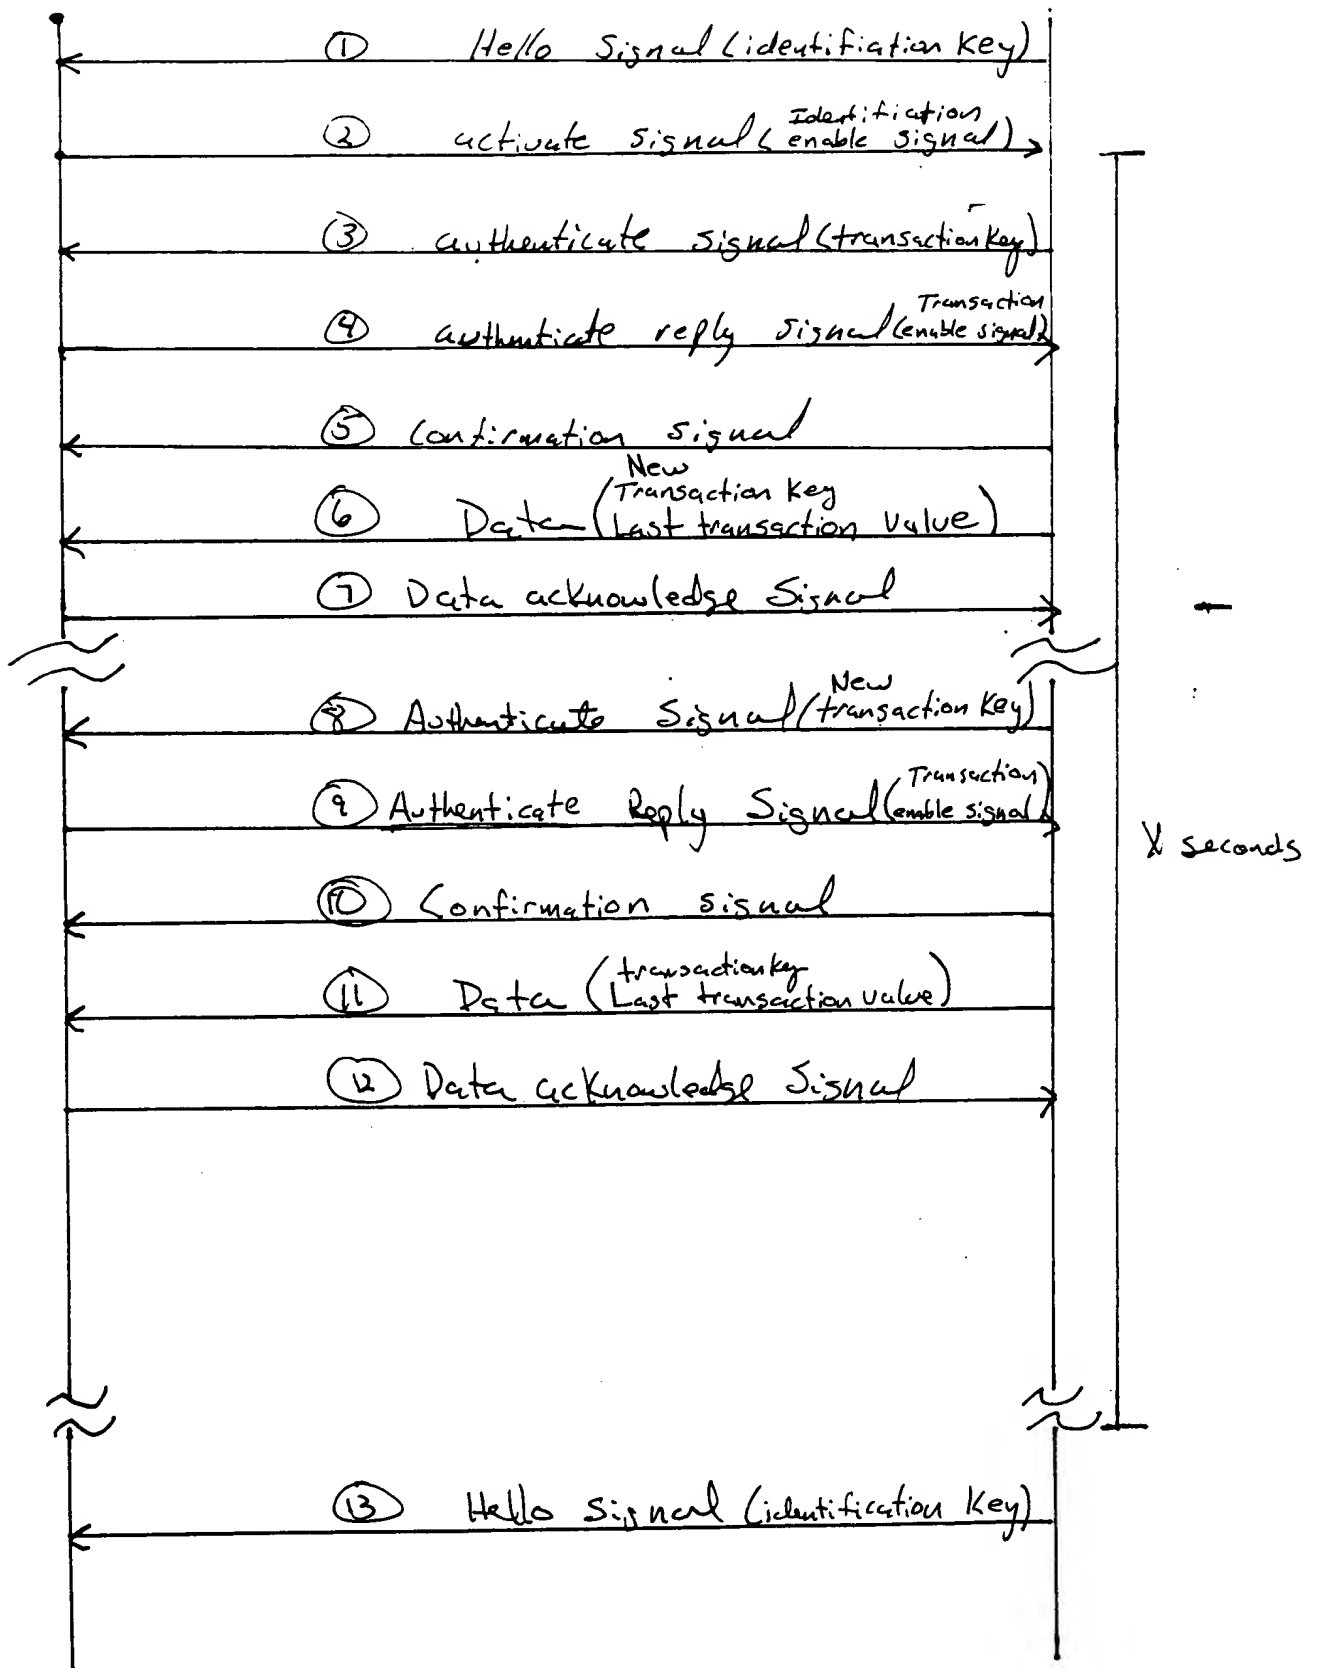 ① Hello Signal (identifiation Key)
② activate signal (Identifiation
enable signal)
③ authenticate signal (transaction Key)
④ authenticate reply signal (Transaction
enable signal)
⑤ Confirmation signal
⑥ Data (New
Transaction Key
Last transaction value)
⑦ Data acknowledge Signal
⑧ Authenticate Signal (New
transaction Key)
⑨ Authenticate Reply Signal (Transaction
enable signal)
⑩ Confirmation signal
⑪ Data (transaction Key
Last transaction value)
⑫ Data acknowledge Signal
X seconds
⑬ Hello Signal (identification Key)